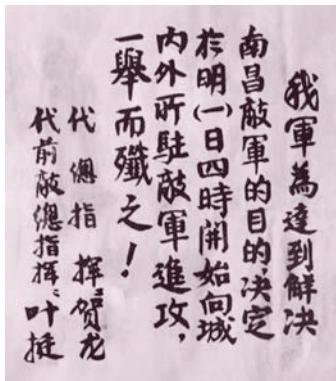 我軍為達到解決
南昌敵軍的目的,決定
於明(一)日四時開始向城
內外所駐敵軍進攻,
一舉而殲之!
代總指揮:賀龙
代前敵總指揮:叶挺